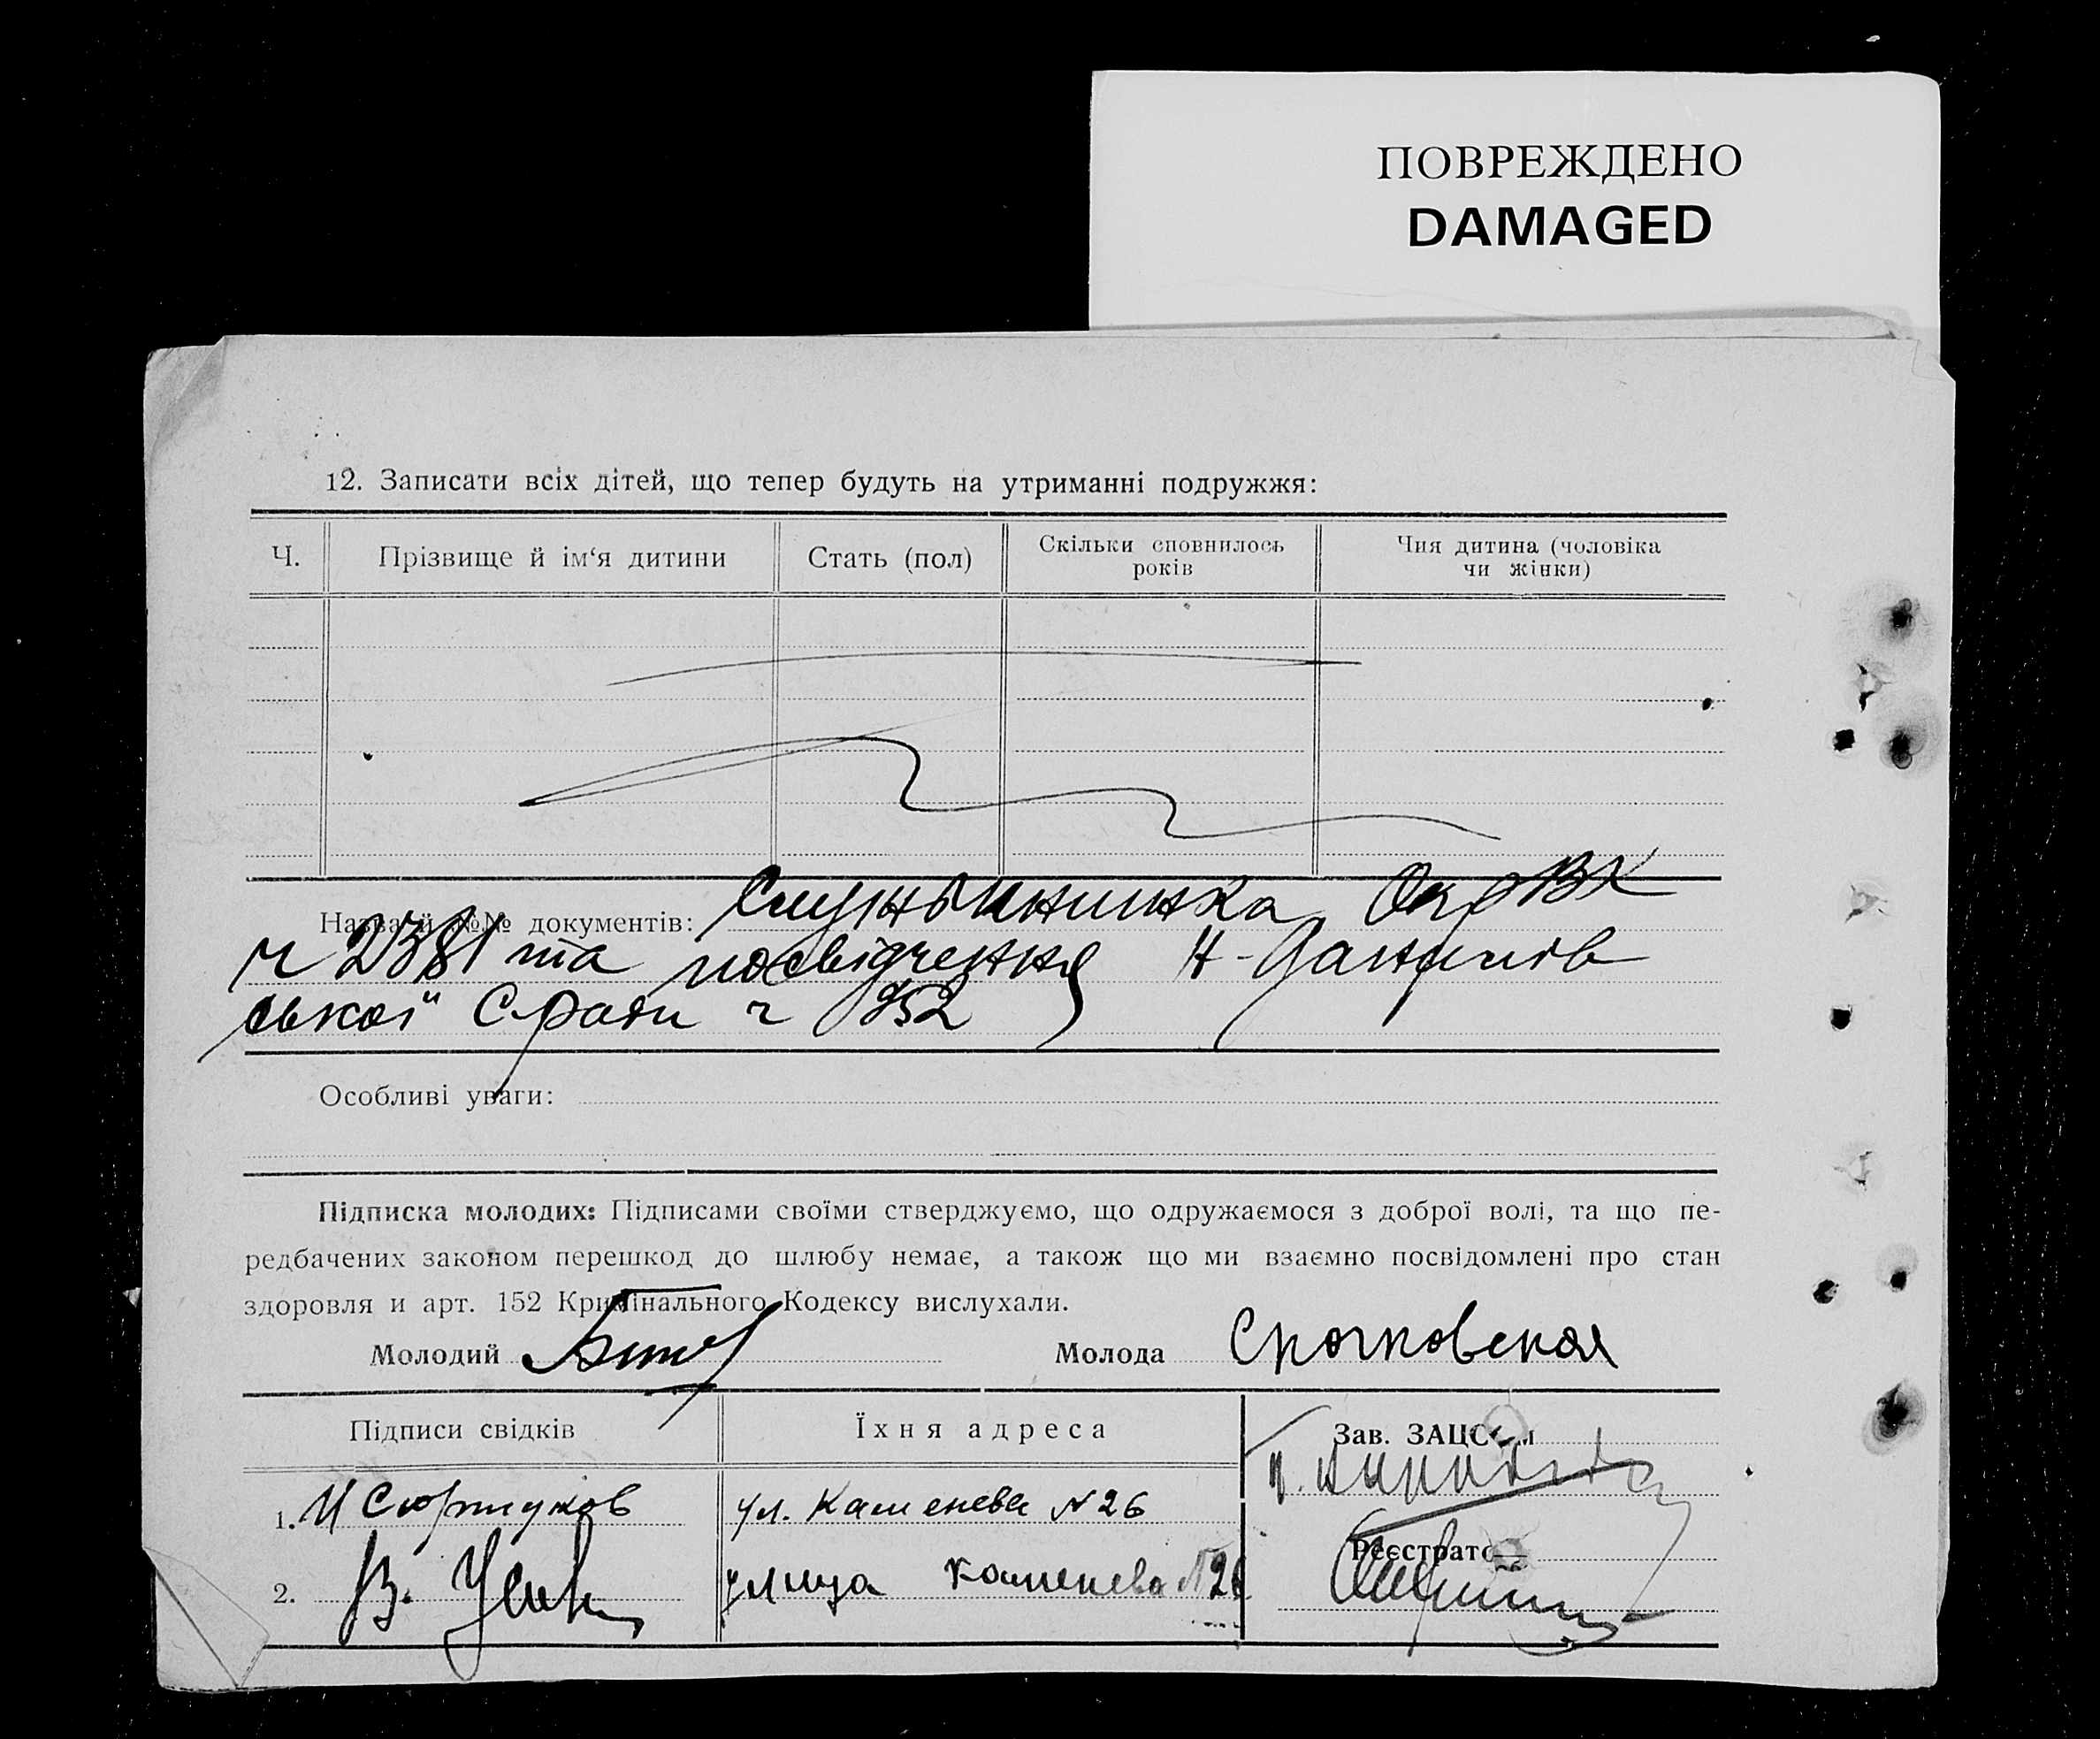 ПОВРЕЖДЕНО
DAMAGED
12. Записати всіх дітей, що тепер будуть на утриманні подружжя:
Ч. Прізвище й ім‘я дитини Стать (пол) Скільки сповнилось років Чия дитина (чоловіка чи жінки)
Назва й №№ документів: ОкрВК
ч 2381 та посвідчення Н-
ської С.ради ч 952
Особливі уваги:
Підписка молодих: Підписами своїми стверджуємо, що одружаємося з доброї волі, та що пе-
редбачених законом перешкод до шлюбу немає, а також що ми взаємно посвідомлені про стан
здоровля и арт. 152 Кримінального Кодексу вислухали.
Молодий Молода
Підписи свідків Їхня адреса Зав. ЗАЦС‘ом
1. И Сюртуков ул. Каменева № 26
Реєстратор
2. В. улица Каменева № 26